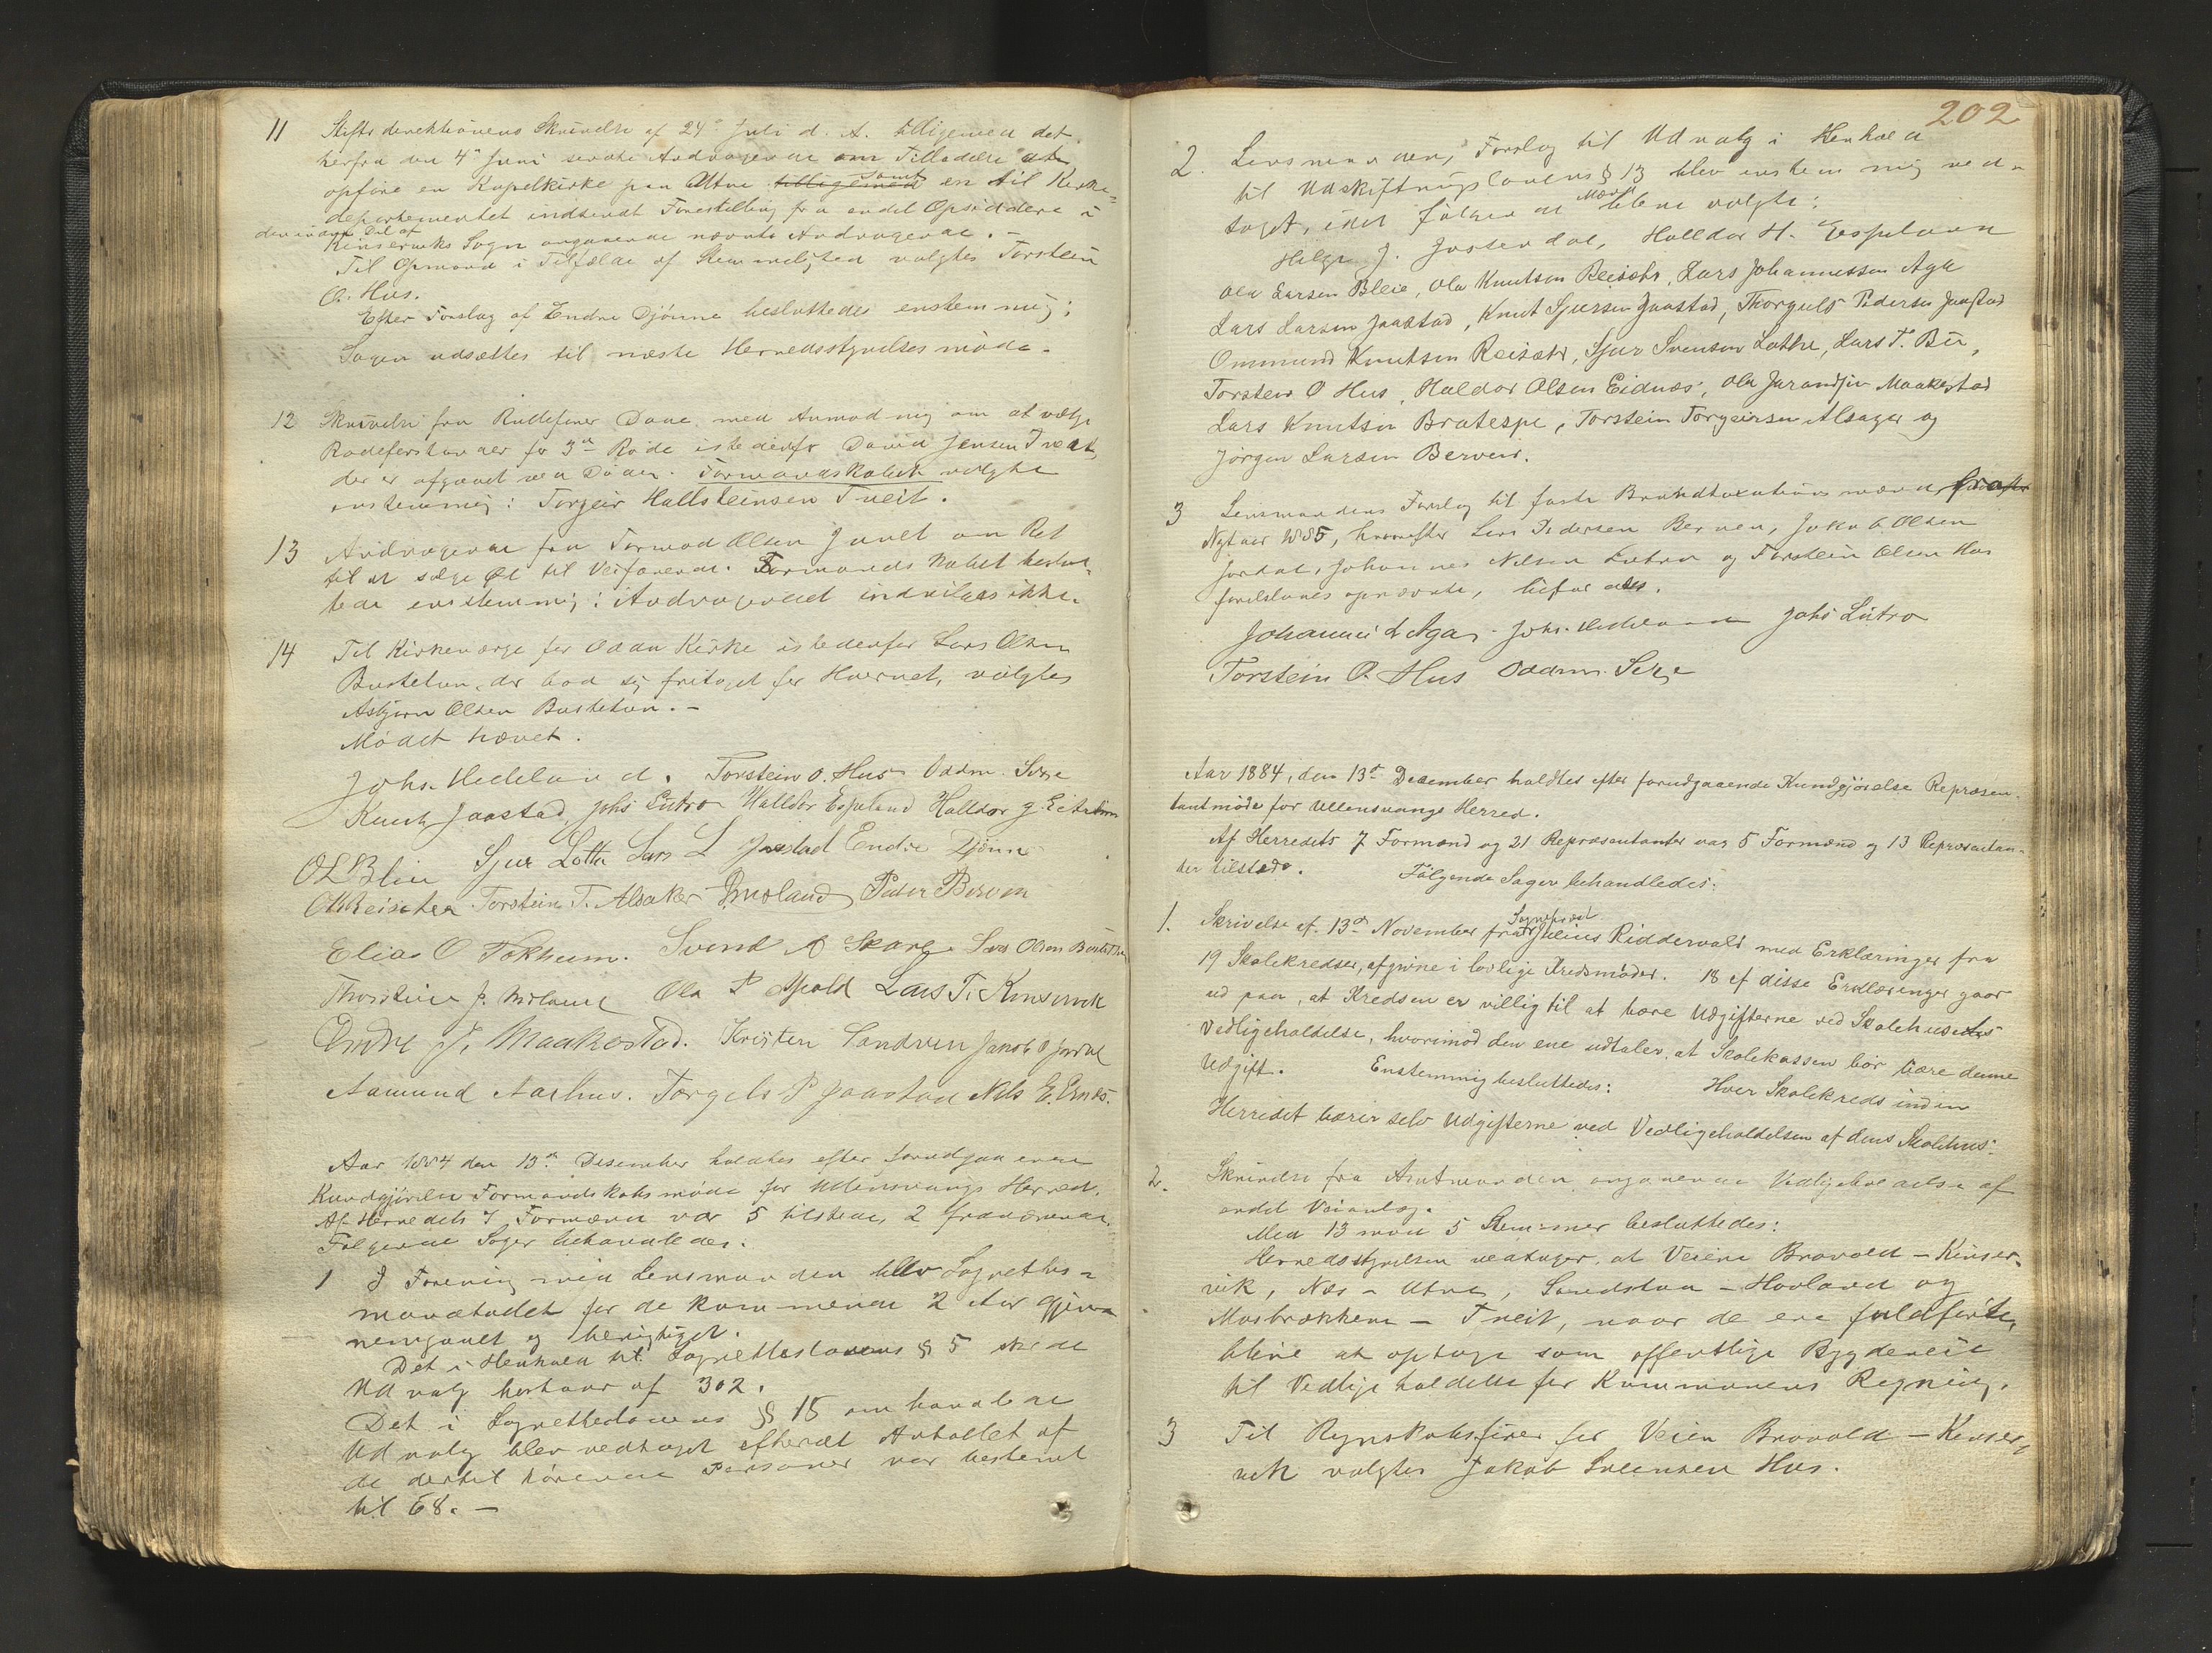 11 Stiftsdirektionens Skrivelse af 24de Juli d. A. tilligemed det
herfra den 4de Juni sendte Andragende om Tilladelse at
opføre en Kapelkirke paa Utne tilligemed samt en til Kirke-
departementet indsendt Forestilling fra endel Opsiddere i
den indre Del af
Kinserviks Sogn angaaende nævnte Andragende. -
Til Opmand i Tilfælde af Stemmelighed valgtes Torstein
O. Hus.
Efter Forslag af Endre Djönne besluttedes enstemmig:
Sagen udsættes til næste Herredsstyrelses møde.
12 Skrivelse fra Rodefører Dave med Anmodning om at vælge
Rodeforstander for 3de Rode istedenfor David Jensen Tveit,
der er afgaaet ved Döden. Formandskabet valgte
enstemmig: Torgeir Hallsteinsen Tveit.
13 Andragende fra Tormod Olsen Jaalet om Ret
til at sælge Øl til Veifarende. Formandskabet beslut-
tede enstemmig: Andragendet indvilges ikke.
14 Til Kirkeværge for Odda Kirke istedenfor Lars Olsen
Bustetun, der bad sig fritaget for Hvervet, valgtes
Asbjørn Olsen Bustetun. -
Mødet hævet.
Johs. Utchland. Torstein O. Hus Oddm. Sexe
Knut Jaastad, Johs Lutro Halldor Espeland Halldor J. Eitrheim
O L Blie Sjur Lotte Lars L Jaastad Endre Djönne
O K Reisæter Torstein T. Alsaker Peder Berven
Elias O Tokheim. Svend A Skare Lars Olsen Bustetun
Thorstein J. Mæland Ola P Apold Lars T. Kinservik
Endre J. Maakestad. Kristen Sandven Jakob O Jordal
Aamund Aarhus. Torgils P Jaastad Nils E. Ernes.
Aar 1884 den 13de Desember holdtes efter forudgaaende
Kundgjørelse Formandskabsmøde for Ullensvangs Herred.
Af Herredets 7 Formænd var 5 tilstede, 2 fraværende.
Følgende Sager behandledes.
1 I Forening med Lensmanden blev Lagrettes-
mandstallet for de kommende 2 Aar gjen-
nemgaaet og berigtiget.
Det i Henhold til Lagrettesloven § 5 skede
Udvalg bestaar af 302.
Det i Lagrettesloven § 15 omhandlede
Udvalg blev vedtaget efterat Antallet af
de dertil hörende Personer var bestemt
til 68. -
202
2. Lensmandens Forslag til Udvalg i Henhold
til Udskiftningslovens § 13 blev enstemmig ved-
taget, idet følgende Mænd blev valgte:
Helge J. Jostendal, Halldor H. Espeland
Ola Larsen Bleie, Ola Knutsen Reisæter, Lars Johannessen Aga
Lars Larsen Jaastad, Knut Sjursen Jaastad, Thorgils Pedersen Jaastad
Ommund Knutsen Reisæter, Sjur Svensen Lothe, Lars T. Bu,
Torstein O Hus, Haldor Olsen Eidnæs, Ola Jurandsen Maakestad
Lars Knutsen Bratespe, Torstein Torgeirsen Alsager og
Jørgen Larsen Berven.
3 Lensmandens Forslag til faste Brandtaxationsmænd fra
Nytaar 1885, hvorefter Lars Pedersen Berven, Jakob Olsen
Jordal, Johannes Nilsen Lutro og Torstein Olsen Hus
foreslaaes opnævnte, bifaldtes.
Johannes L Aga Johs. Utchland Johs Lutro
Torstein O. Hus Oddm. Sexe
Aar 1884, den 13de December holdtes efter forudgaaende Kundgjörelse Repræsen-
tantmöde for Ullensvangs Herred.
Af Herredets 7 Formænd og 21 Repræsentanter var 5 Formænd og 13 Repræsentan-
ter tilstede. Fölgende Sager behandledes:
1. Skrivelse af 13de November fra Sogneprest Julius Riddervold med Erklæringer fra
19 Skolekredser, afgivne i lovlige Kredsmöder. 18 af disse Erklæringer gaar
ud paa, at Kredsen er villig til at bære Udgifterne ved Skolehusets
Vedligeholdelse, hvorimod den ene udtaler, at Skolekassen bör bære denne
Udgift. Enstemmig besluttedes: Hver Skolekreds inden
Herredet bærer selv Udgifterne ved Vedligeholdelsen af dens Skolehus.
2. Skrivelse fra Amtmanden angaaende Vedligeholdelse af
endel Veianlæg.
Med 13 mod 5 Stemmer besluttedes:
Herredsstyrelsen vedtager, at Veiene Bravold - Kinser-
vik, Næs - Utne, Sandstøa - Hovland og
Mosbrækkene - Tveit, naar de ere fuldførte,
blive at optage som offentlige Bygdeveie
til Vedligeholdelse for Kommunens Regning.
3 Til Regnskabsfører for Veien Bravold - Kinser-
vik valgtes Jakob Sveinsen Hus.